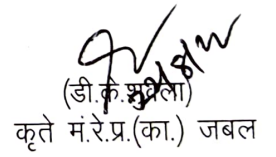 (डी.के.शुक्ला)
कृते मं.रे.प्र.(का.) जबल